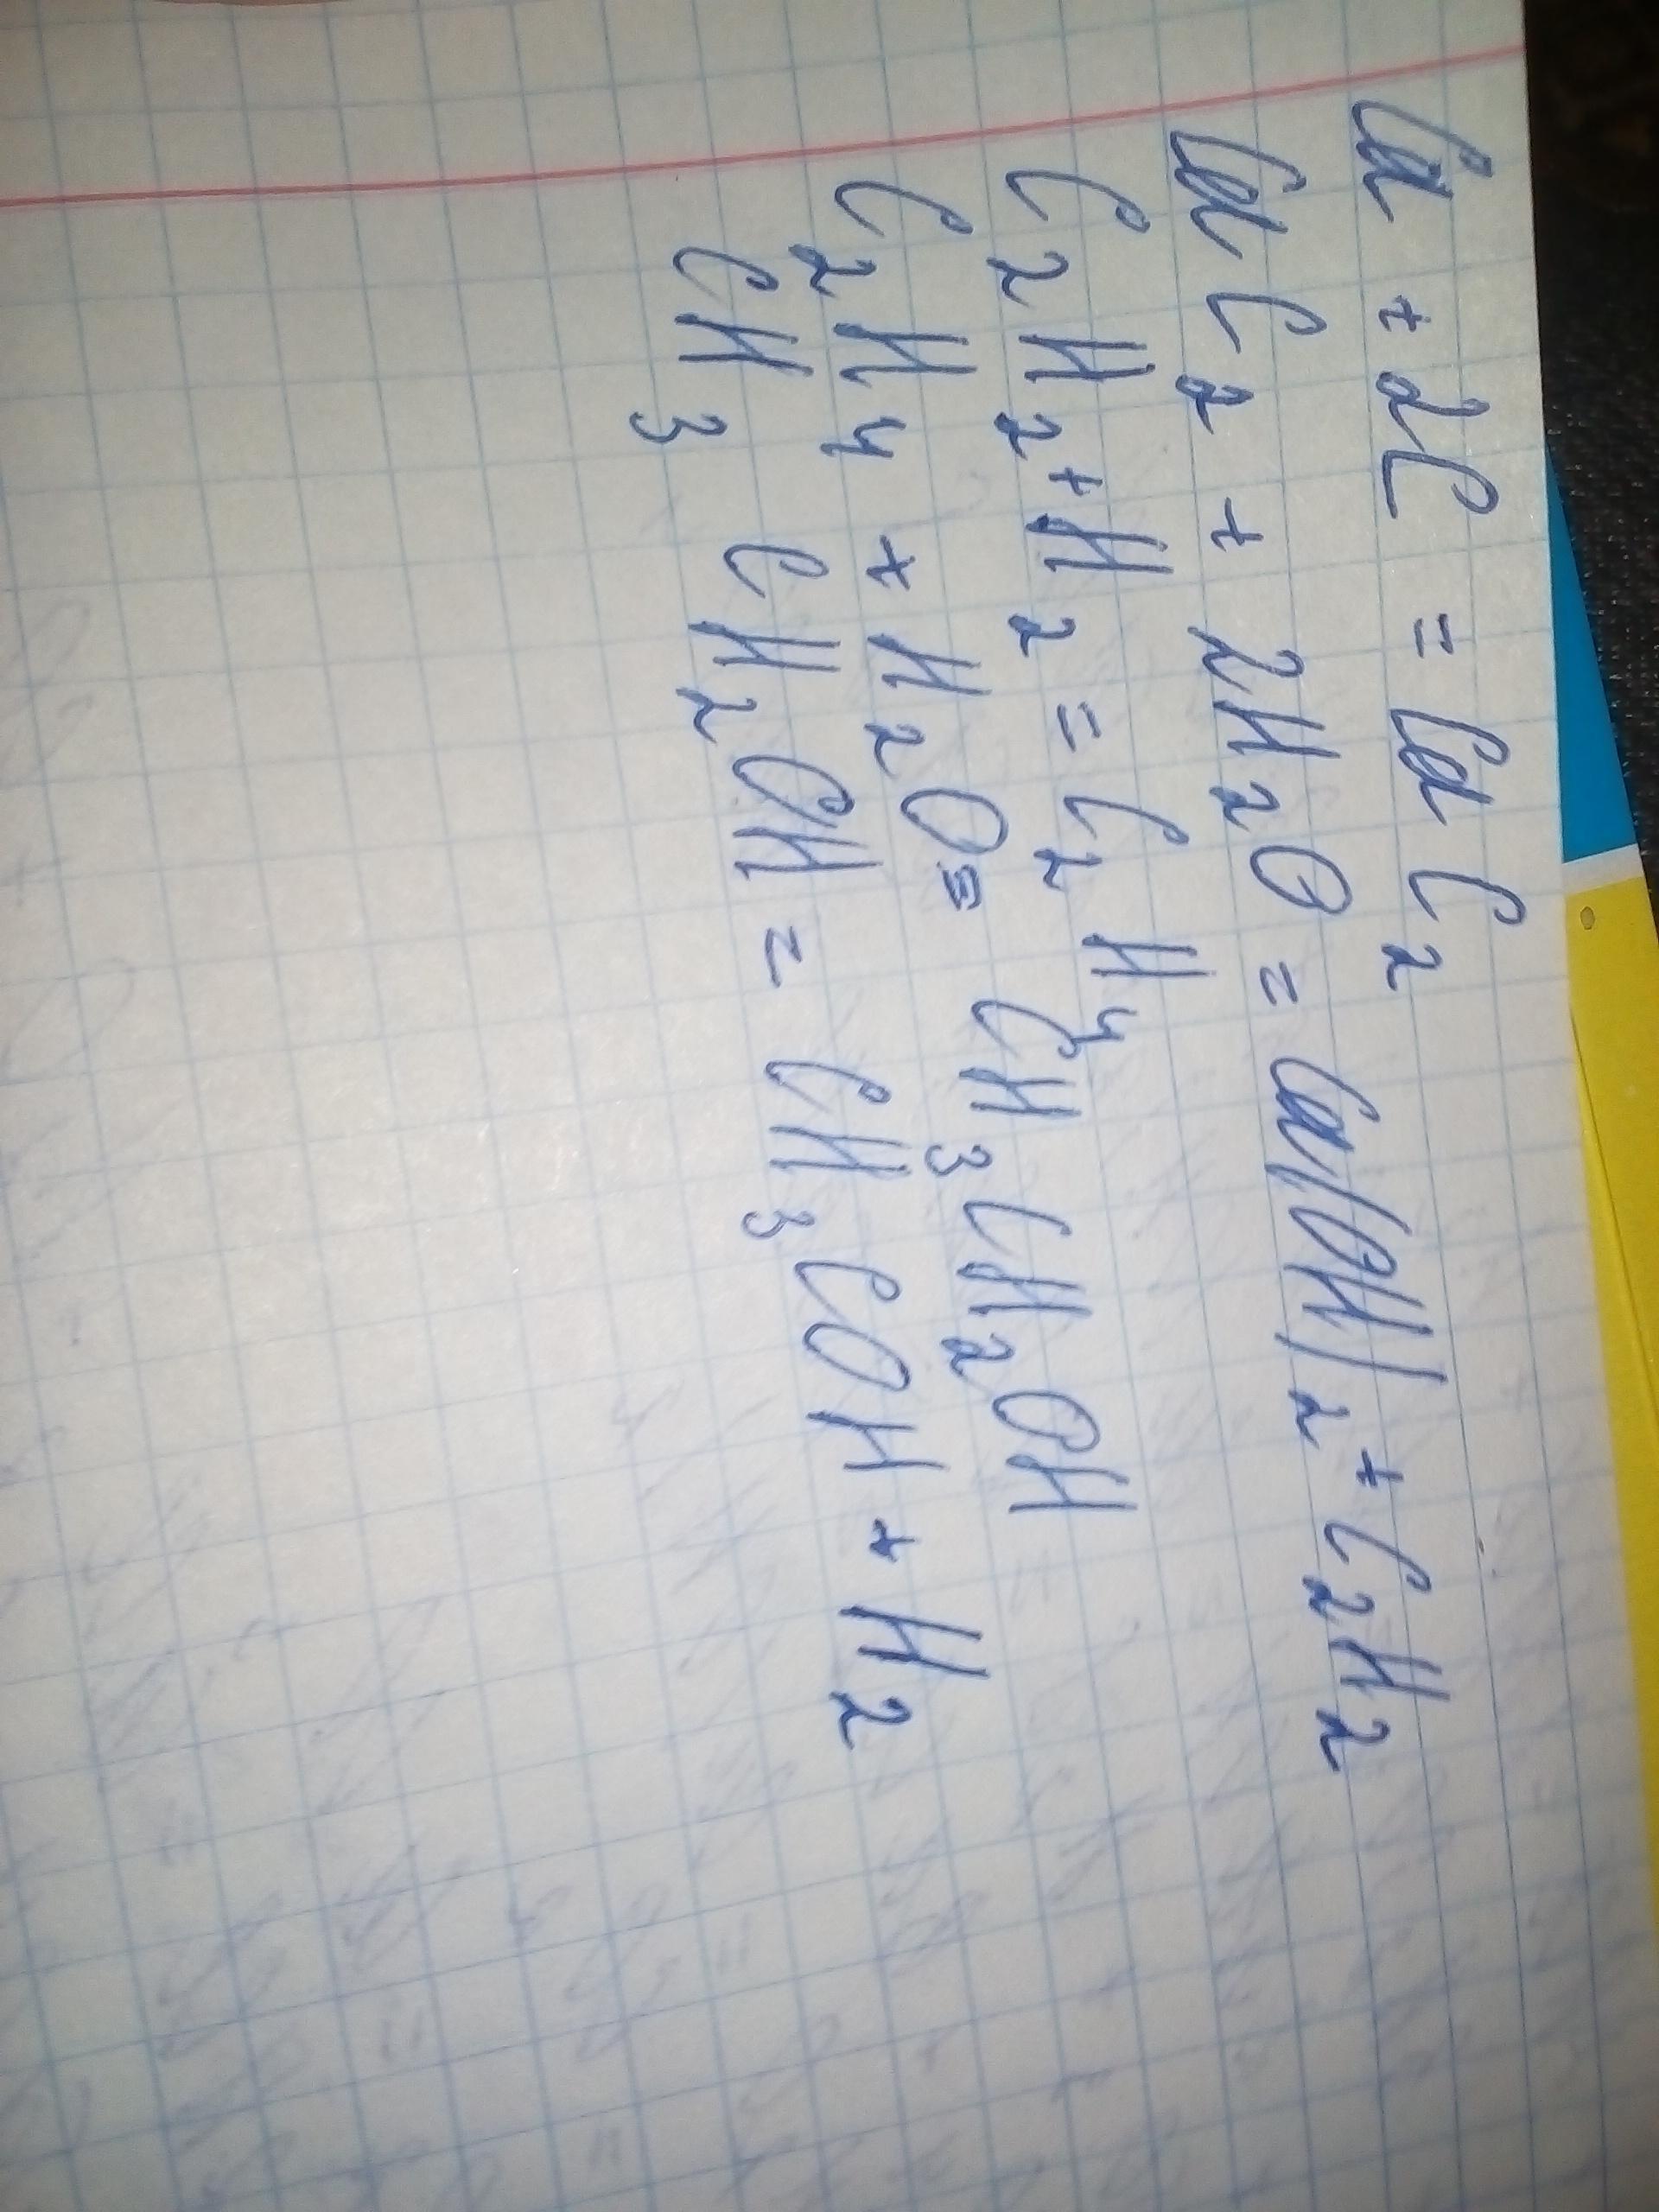 Ca + 2C = CaC2
CaC2 + 2H2O = Ca(OH)2 + C2H2
C2H2 + H2 = C2H4
C2H4 + H2O = CH3CH2OH
CH3 CH2OH = CH3COH + H2